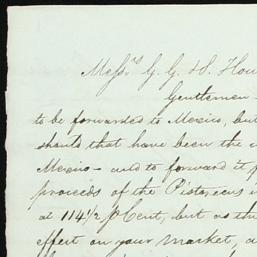 Messrs G. G. & S. How
Gentlemen
to be forwarded to Mexico, but
should that have been the
Mexico - and to forward it
proceeds of the
at 114 1/2 p Cent, but as th
effect on your market, a